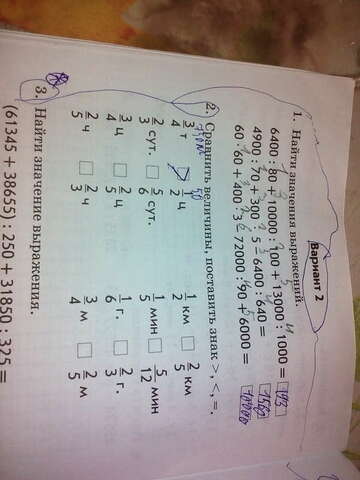 Вариант 2
1. Найти значения выражений.
6400 : 80 + 10000 : 100 + 13000 : 1000 = 193
4900 : 70 + 300 · 5 − 6400 : 640 = 1560
60 · 60 + 400 · 3 − 72000 : 90 + 6000 =
2. Сравнить величины, поставить знак >, <, =.
3/4 т > 1/2 ц 1/2 км □ 2/5 км
2/3 сут. □ 5/6 сут. 1/5 мин □ 5/12 мин
3/4 ц □ 2/4 ц 1/6 г. □ 2/3 г.
2/5 ч □ 2/3 ч 3/4 м □ 2/5 м
3. Найти значение выражения.
(61345 + 38655) : 250 + 31850 : 325 =